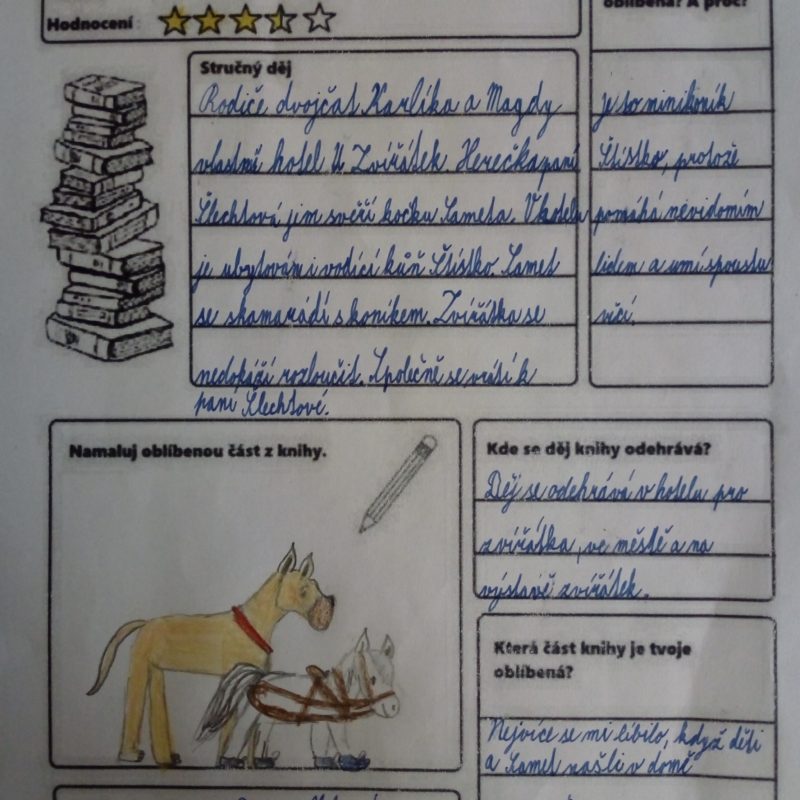 Hodnocení
oblíbená? A proč?
Stručný děj
Rodiče dvojčat Karlíka a Magdy
vlastní hotel U Zvířátek. Herečka paní
Šlechtová jim svěří kočku Sameta. V hotelu
je ubytován i vodící kůň Štístko. Samet
se skamarádí s koníkem. Zvířátka se
nedokáží rozloučit. Společně se vrátí k
paní Šlechtové.
je to minikoník
Štístko, protože
pomáhá nevidomím
lidem a umí spoustu
věcí.
Namaluj oblíbenou část z knihy.
Kde se děj knihy odehrává?
Děj se odehrává v hotelu pro
zvířátka, ve městě a na
výstavě zvířátek.
Která část knihy je tvoje
oblíbená?
Nejvíce se mi líbilo, když děti
a Samet našli v domě